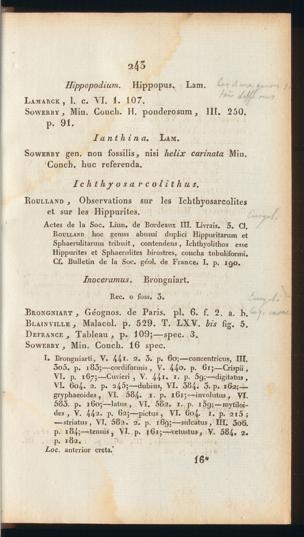 243
Hippopodium. Hippopus. Lam.
LAMARCK, l. c. VI. 1. 107.
SOWERBY, Min. Conch. H. ponderosum, III. 250.
p. 91.
Ianthina. LAM.
SOWERBY gen. non fossilis, nisi helix carinata Min.
Conch. huc referenda.
Ichthyosarcolithus.
ROULLAND, Observations sur les Ichthyosarcolites
et sur les Hippurites.
Actes de la Soc. Linn. de Bordeaux III. Livrais. 5. Cl.
ROULLAND hoc genus abusui duplici Hippuritarum et
Sphaerulitarum tribuit, contendens, Ichthyolithos esse
Hippurites et Sphaerolites birostres, concha tubuliformi.
Cf. Bulletin de la Soc. géol. de France. I. p. 190.
Inoceramus. Brongniart.
Rec. 0 foss. 3.
BRONGNIART, Géognos. de Paris. pl. 6. f. 2. a. b.
BLAINVILLE, Malacol. p. 529. T. LXV. bis fig. 5.
DEFRANCE, Tableau, p. 109;—spec. 3.
SOWERBY, Min. Conch. 16 spec.
I. Brongniarti, V. 441. 2. 3. p. 60;—concentricus, III.
305. p. 183;—cordiformis, V. 440. p. 61;—Crispii,
VI. p. 167;—Cuvieri, V. 441. 1. p. 59;—digitatus,
VI. 604. 2. p. 245;—dubius, VI. 584. 3. p. 162;—
gryphaeoides, VI. 584. 1. p. 161;—involutus, VI.
583. p. 160;—latus, VI. 582. 1. p. 159;—mytiloi-
des, V. 442. p. 62;—pictus, VI. 604. 1. p. 215;
—striatus, VI. 582. 2. p. 169;—sulcatus, III. 306.
p. 184;—tenuis, VI. p. 161;—vetustus, V. 584. 2.
p. 182.
Loc. anterior creta.
16*